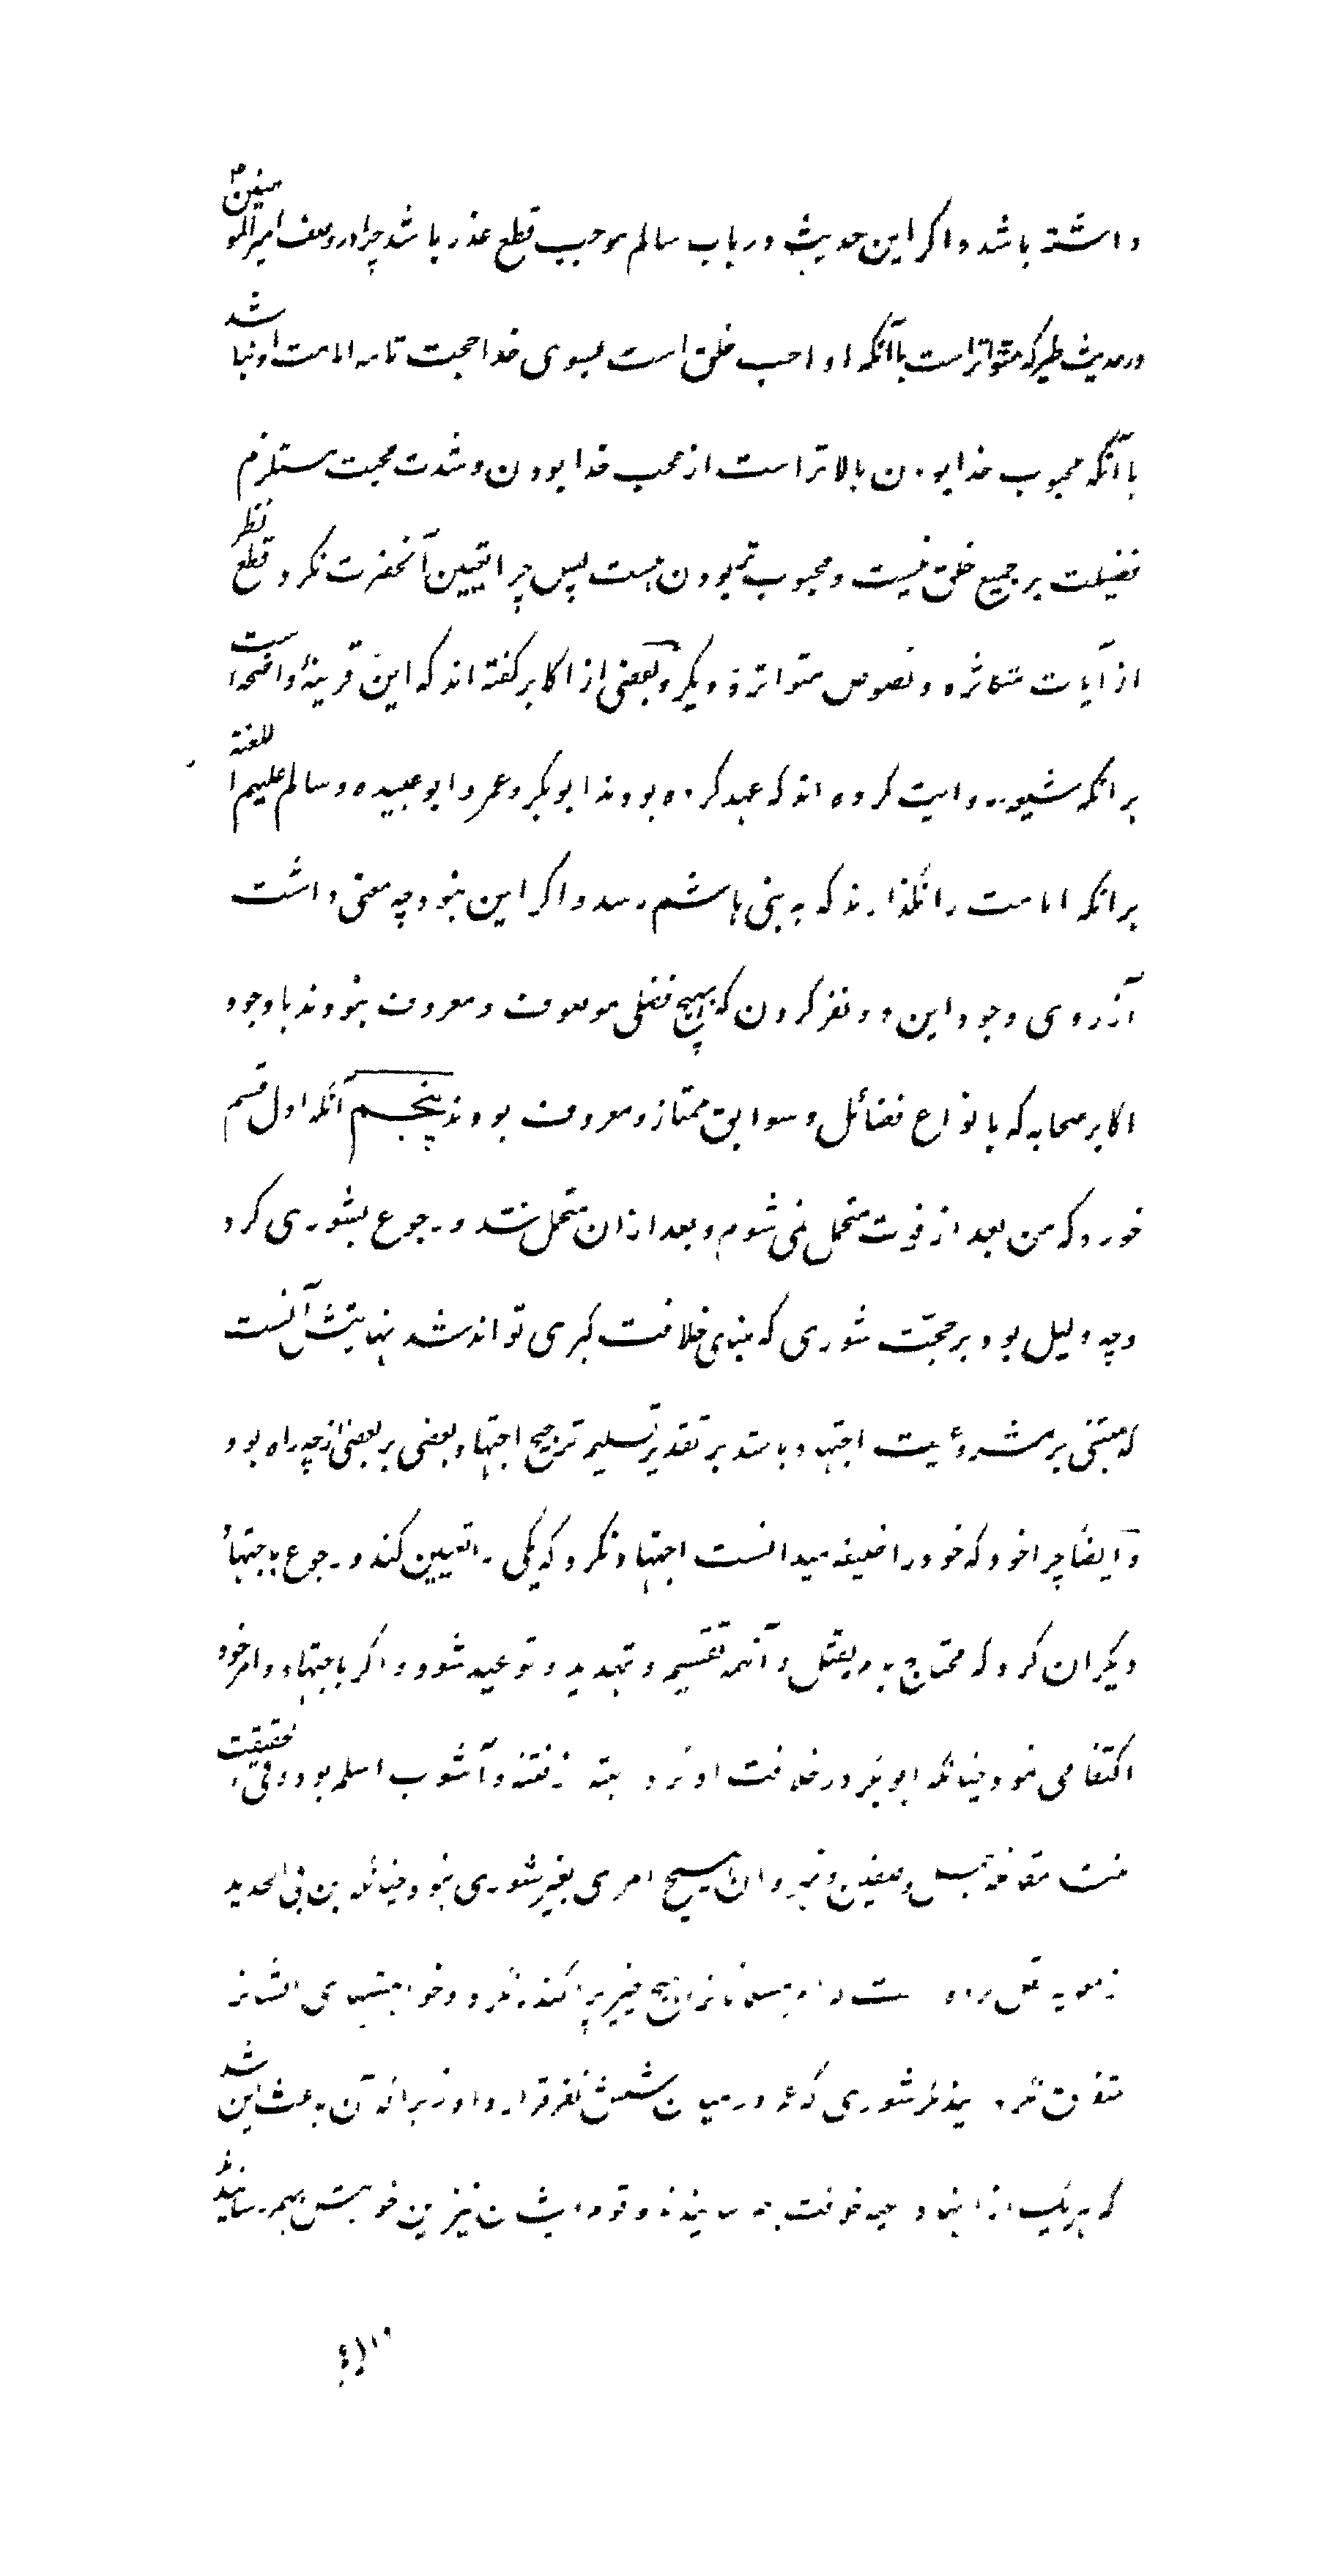 داشته باشد و اگر این حدیث در باب سالم موجب قطع عذر باشد چرا در وصف امیر المومنین
در حدیث طیر که متواتر است با آنکه او احب خلق است بسوی خدا حجت تامه امامت او نباشد
با آنکه محبوب خدا بودن بالاتر است از محب خدا بودن و شدت محبت مستلزم
فضیلت بر جمیع خلق نیست و محبوب تر بودن هست پس چرا تعیین آنحضرت نکرد قطع نظر
از آیات متکاثره و نصوص متواترهٔ دیگر و بعضی از اکابر گفته اند که این قرینهٔ واضحه است
بر انکه شیعه روایت کرده اند که عهد کرده بودند ابوبکر و عمر و ابو عبیده و سالم علیهم اللعنة
بر انکه امامت را نگذارند که به بنی هاشم رسد و اگر این نبود چه معنی داشت
آرزوی وجود این دو نفر کردن که بهیچ فضلی موصوف و معروف نبودند با وجود
اکابر صحابه که بانواع فضائل و سوابق ممتاز و معروف بودند پنجم آنکه اول قسم
خورد که من بعد از فوت متحمل نمی شوم و بعد از ان متحمل شد و رجوع بشوری کرد
و چه دلیل بود بر حجیّت شوری که بنای خلافت کبری تواند شد نهایتش آنست
که مبتنی بر مشروعیت اجتهاد باشد بر تقدیر تسلیم ترجیح اجتهاد بعضی بر بعضی از چه راه بود
و ایضاً چرا خود که خود را خلیفه میدانست اجتهاد نکرد که یکی را تعیین کند و رجوع باجتهاد
دیگران کرد که محتاج به و بقتل و آنهمه تقسیم و تهدید و توعید شود و اگر باجتهاد و امر خود
اکتفا می نمود چنانکه ابوبکر در خلافت او کرد البته از فتنه و آشوب اسلم بود و فی الحقیقت
جمل و صفین و نهروان هیچ امری بغیر شوری نبود چنانکه ابن ابی الحدید
از معویه نقل کرده است که امر مسلمانان را هیچ چیز پراکنده نکرد و خواهشهای ایشانرا
متفرق نکرد مگر شوری که عمر در میان شش نفر قرار داد زیرا که آن باعث این شد
که هر یک از اینها داعیه خلافت بهم رسانیدند و قوم ایشان نیز این خواهش بهم رسانیدند